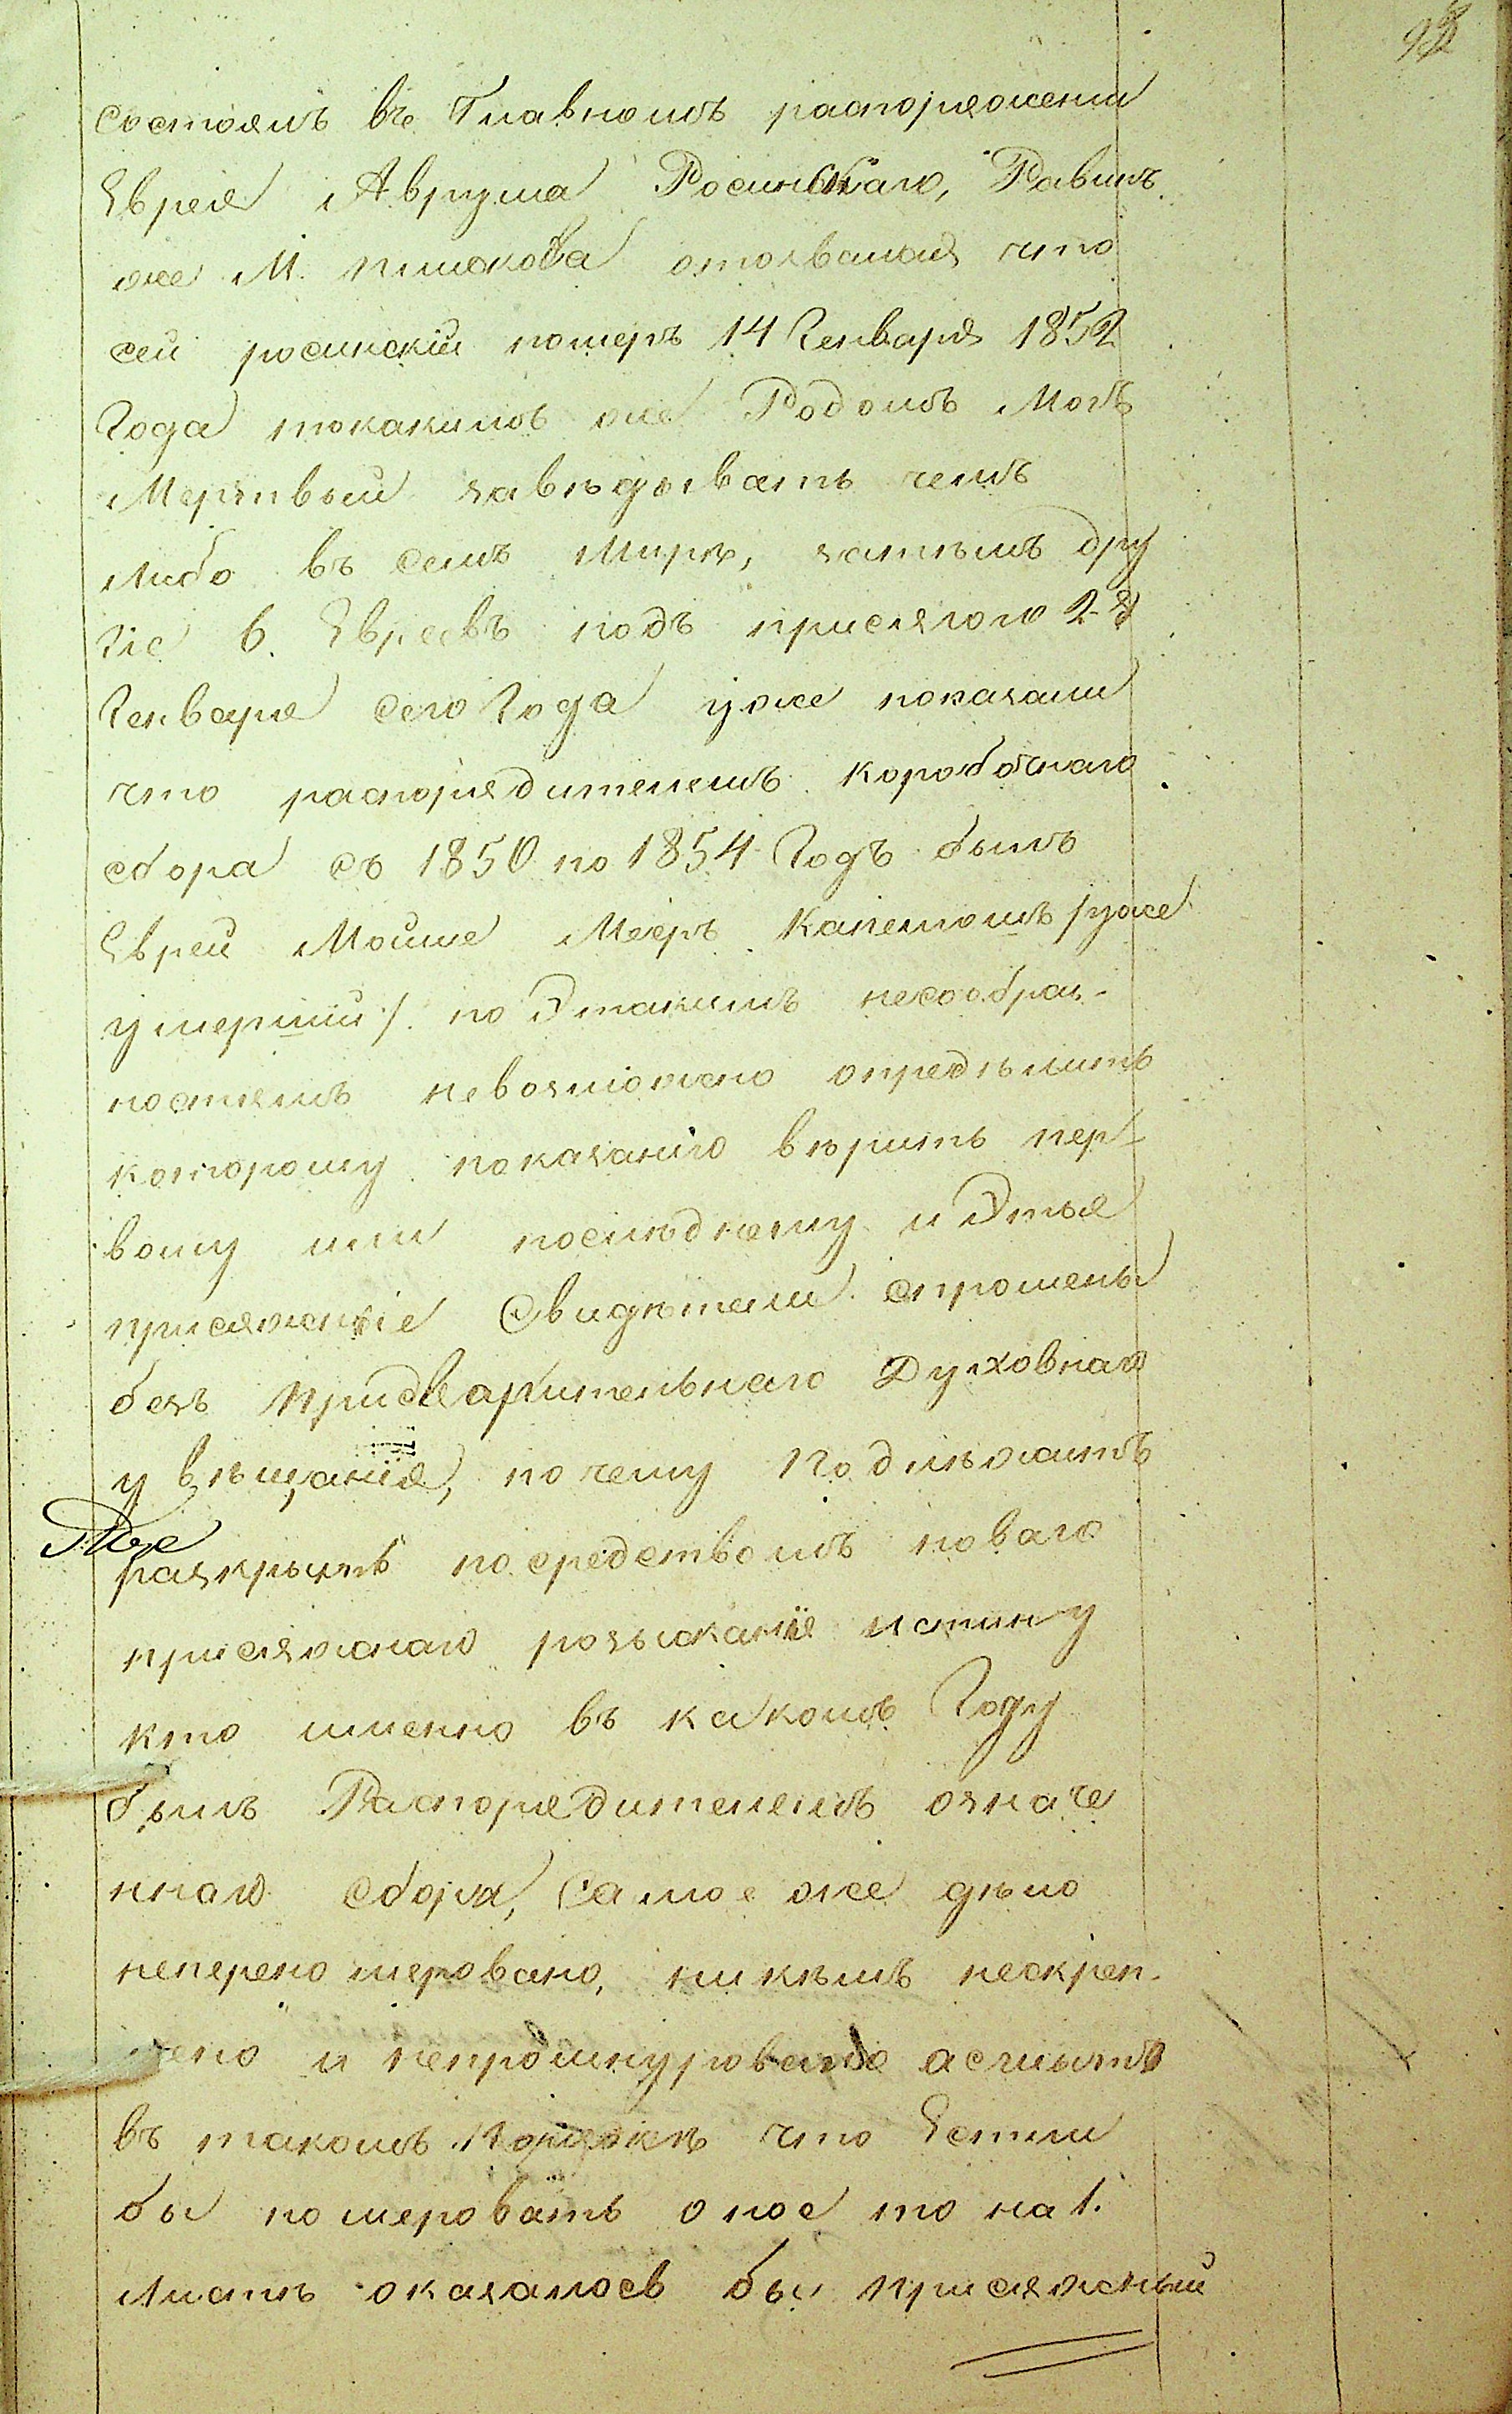 состоялъ въ Главномъ распоряжении
Еврея Аврума Росинскаго, Равинъ
же М. Пинскова отозвался что
сей росинский померъ 14 Генваря 1852
года токакимъ же Родомъ Могъ
Мертвый заведывать чемъ
Либо въ семъ Мирѣ, затѣмъ дру
гіе 6. Евреевъ подъ присягою 22
Генваря сего года уже показали
что распорядителемъ коробочнаго
сбора съ 1850 по 1854 Годъ былъ
Еврей Мойше Мееръ /уже
умерший/. по Этакимъ несообраз-
ностямъ невозможно определить
которому показанию вѣрить пер-
вому или последнему и Этые
присяжніе Свидѣтели спрошены
безъ придварительнаго Духовнаго
увѣщания, почему Подлѣжитъ
разкрыть посредствомъ новаго
присяжнаго розыскания истину
кто именно въ какомъ Году
былъ Распорядителемъ означе
ннаго Сбора, Самое же дѣло
неперенумеровано, никѣмъ нескреп-
лено и непрошнуровано асшыто
въ такомъ Порядке что Естли
бы номеровать оное то на 1.
Листѣ оказалось бы присяжный